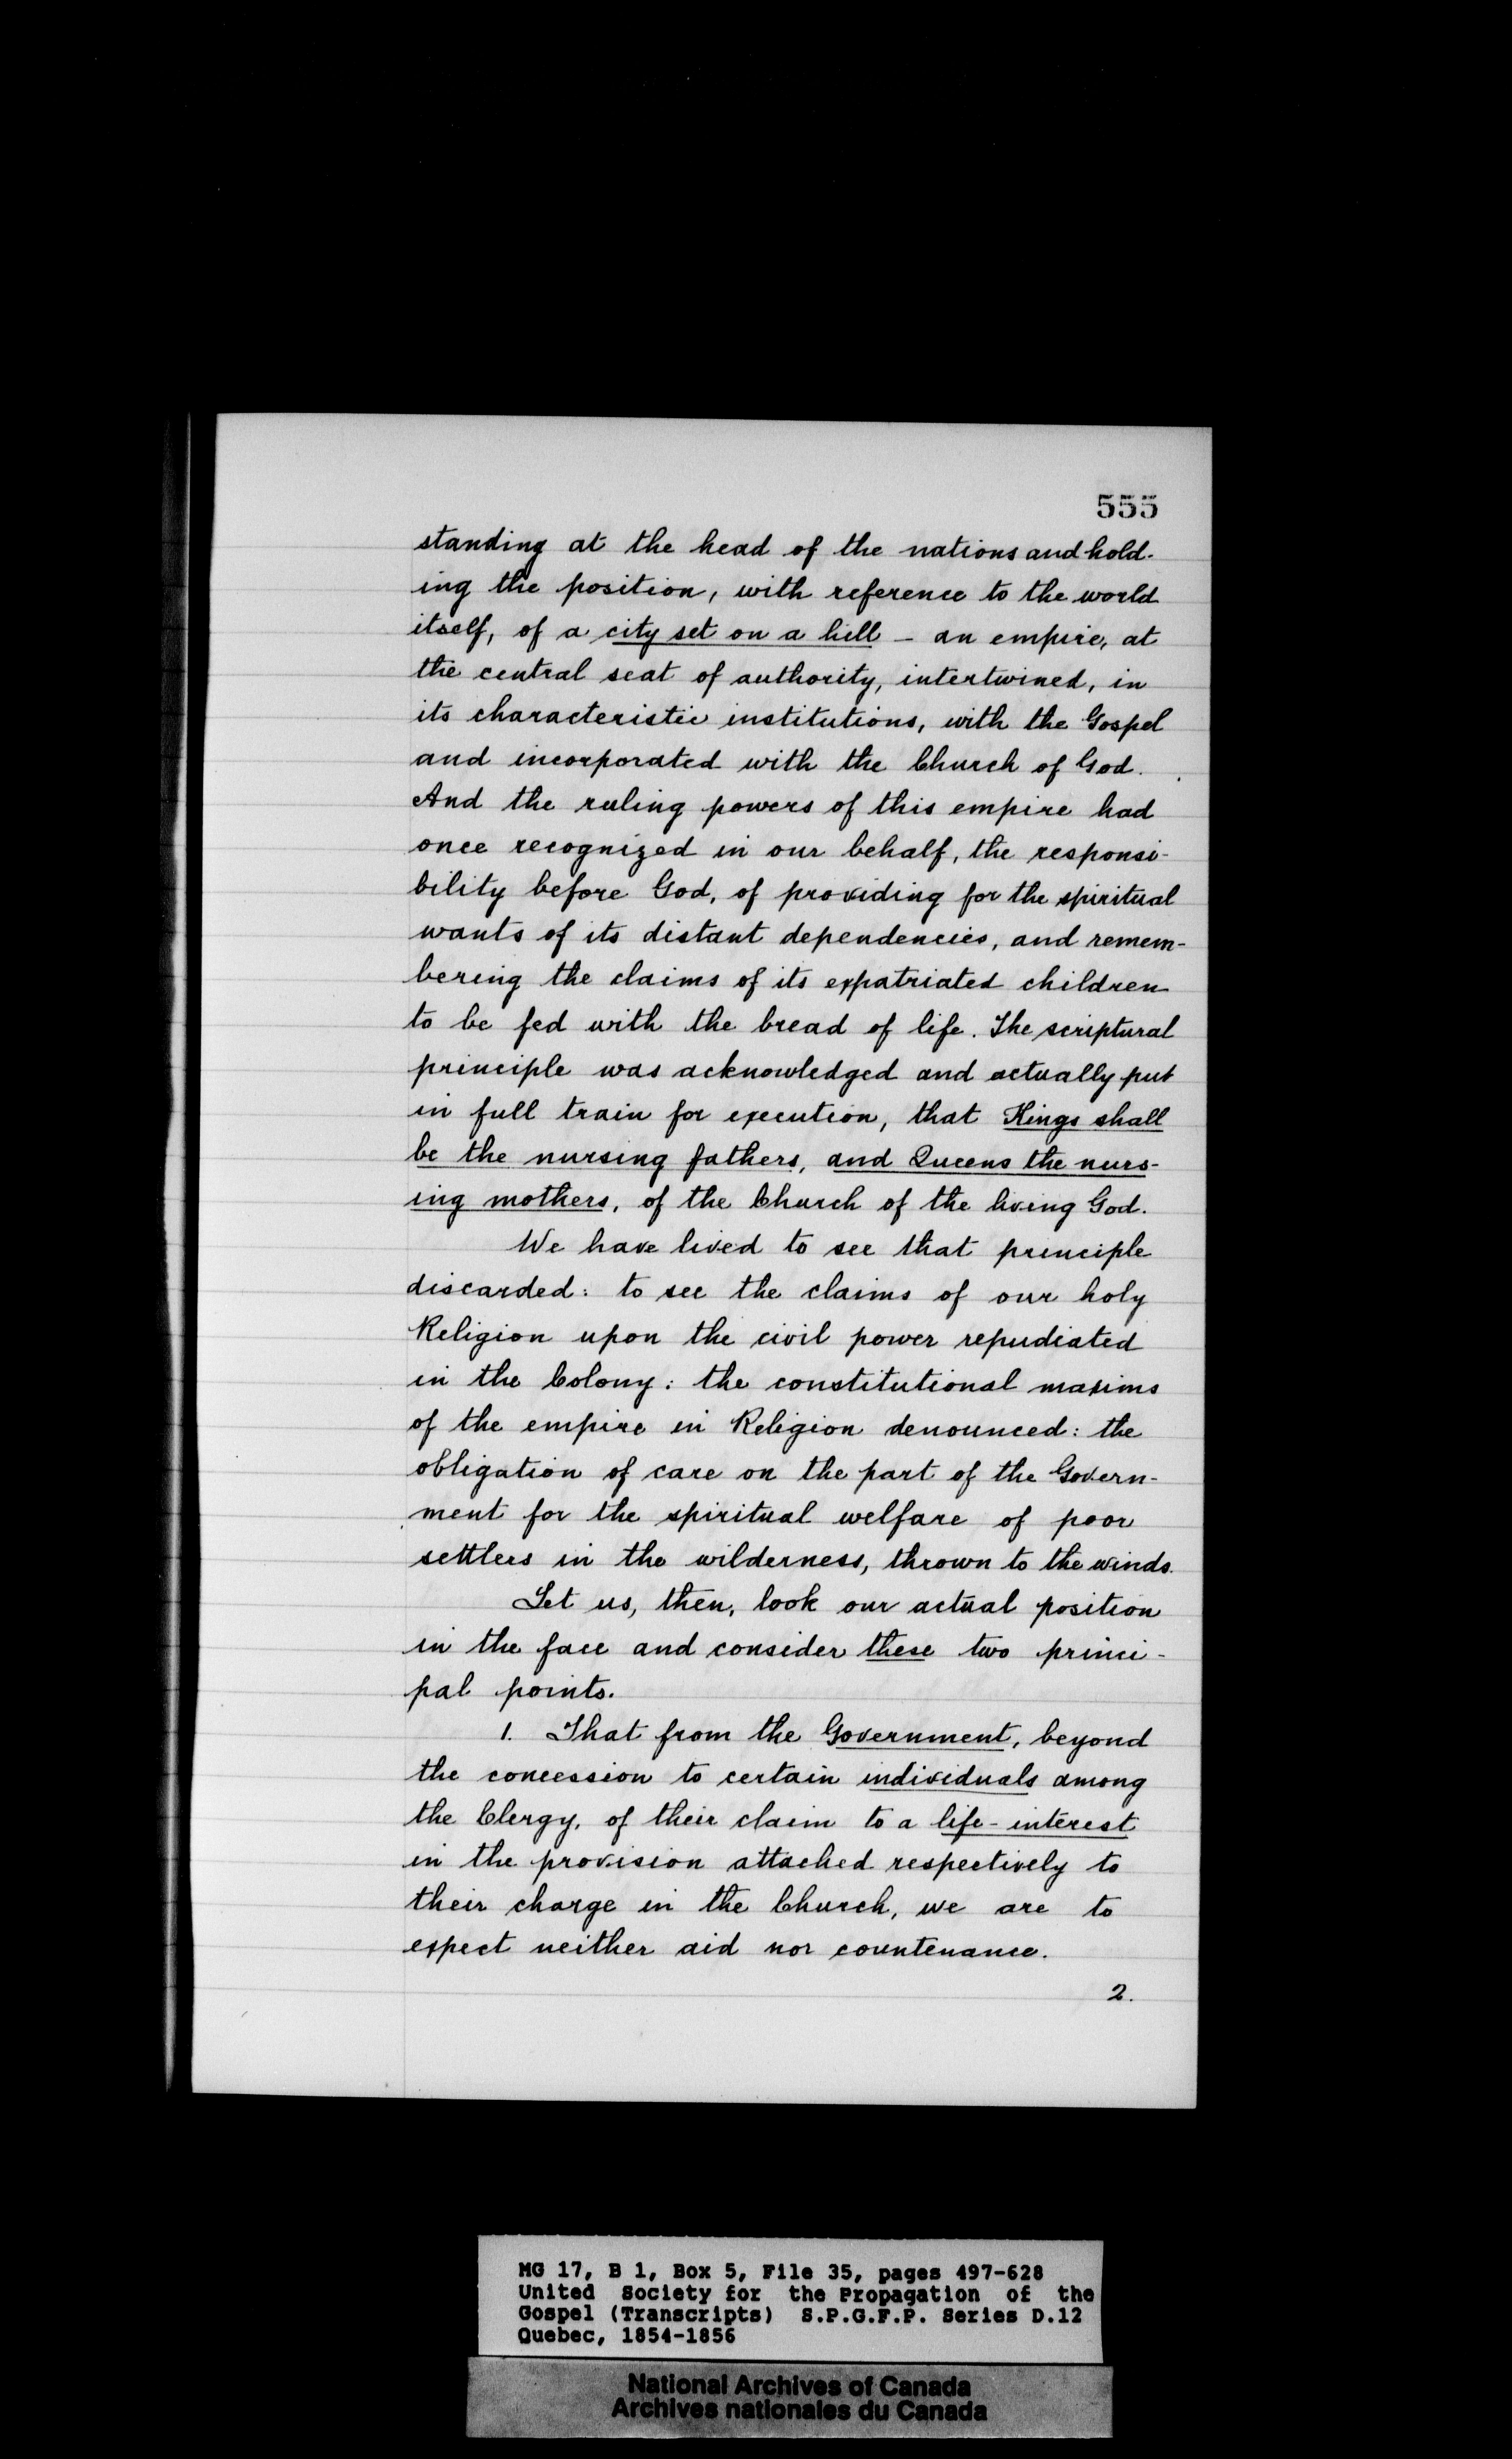 555
standing at the head of the nations and hold-
ing the position, with reference to the world
itself, of a city set on a hill - an empire, at
the central seat of authority, intertwined, in
its characteristic institutions, with the Gospel
and incorporated with the Church of God.
And the ruling powers of this empire had
once recognized in our behalf, the responsi-
bility before God, of providing for the spiritual
wants of its distant dependencies, and remem-
bering the claims of its expatriated children
to be fed with the bread of life. The scriptural
principle was acknowledged and actually put
in full train for execution, that Kings shall
be the nursing fathers, and Queens the nurs-
ing mothers, of the Church of the living God.
We have lived to see that principle
discarded: to see the claims of our holy
Religion upon the civil power repudiated
in the Colony: the constitutional maxims
of the empire in Religion denounced: the
obligation of care on the part of the Govern-
ment for the spiritual welfare of poor
settlers in the wilderness, thrown to the winds.
Let us, then, look our actual position
in the face and consider these two princi-
pal points.
1. That from the Government, beyond
the concession to certain individuals among
the Clergy, of their claim to a life-interest
in the provision attached respectively to
their charge in the Church, we are to
expect neither aid nor countenance.
2.
MG 17, B 1, Box 5, File 35, pages 497-628
United Society for the Propagation of the
Gospel (Transcripts) S.P.G.F.P. Series D.12
Quebec, 1854-1856
National Archives of Canada
Archives nationales du Canada